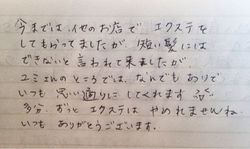 今までは、他のお店で エクステを
してもらってましたが、短い髪には
できないと言われて来ましたが
ユミさんのところでは、なんでもありで
いつも 思い通りにしてくれます
多分、ずっと エクステは やめれませんね
いつも ありがとうございます。